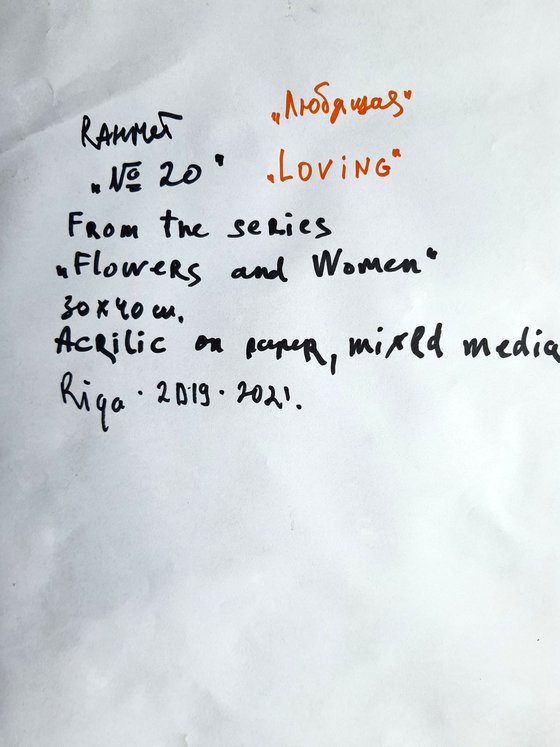 RAHMET
„Любящая"
„№ 20"
„LOVING"
From the series
„Flowers and Women"
30x40 cm.
Acrilic on paper, mixed media
Riga · 2019 · 2021.